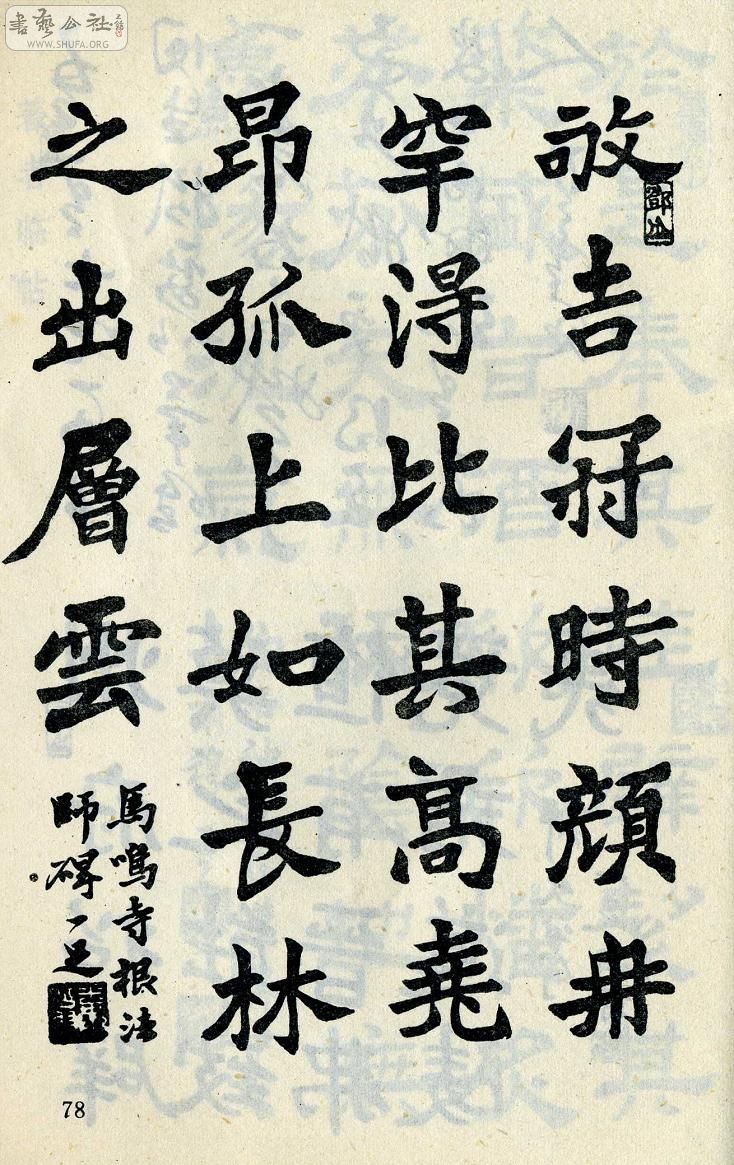 書藝公社
WWW.SHUFA.ORG
故吉冠時顔冉
罕得比其高堯
昂孤上如長林
之出層雲
馬鳴寺根法
師碑一足
78